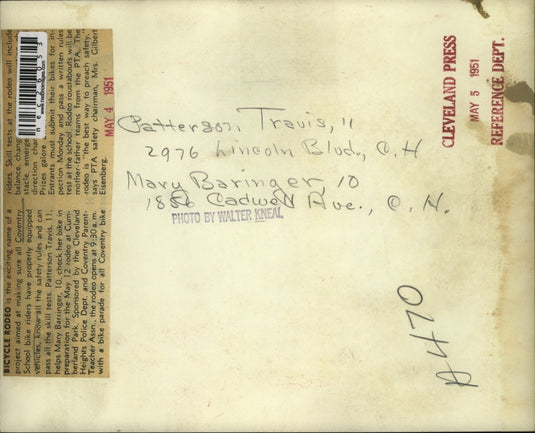 BICYCLE RODEO is the exciting name of a
project aimed at making sure all Coventry
School bike riders have properly equipped
vehicles, know all the safety rules and can
pass all the skill tests. Patterson Travis, 11,
helps Mary Barringer, 10, check her bike in
preparation for the May 12 rodeo at Cum-
berland Park. Sponsored by the Cleveland
Heights Police Dept. and Coventry Parent-
Teacher Assn., the rodeo opens at 9:30 a.m.
with a bike parade for all Coventry bike
riders. Skill tests at the rodeo will include
balance, change
stacle, emerge
direction chan
Prizes galore
Entrants must submit their bikes for in-
spection Monday and pass a written rules
test at the school. Rodeo roustabouts will be
mother-father teams from the PTA. "The
rodeo is the best way to preach safety,"
says PTA safety chairman, Mrs. Gilbert
Eisenberg.
MAY 4 1951
Patterson, Travis, 11
2976 Lincoln Blvd., C.H
Mary Baringer, 10
1880 Cadwell Ave., C.H.
PHOTO BY WALTER KNEAL
CLEVELAND PRESS
MAY 5 1951
REFERENCE DEPT.
470